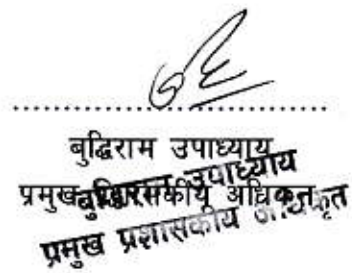 बुद्धिराम उपाध्याय
प्रमुख प्रशासकीय अधिकृत
बुद्धिराम उपाध्याय
प्रमुख प्रशासकीय अधिकृत